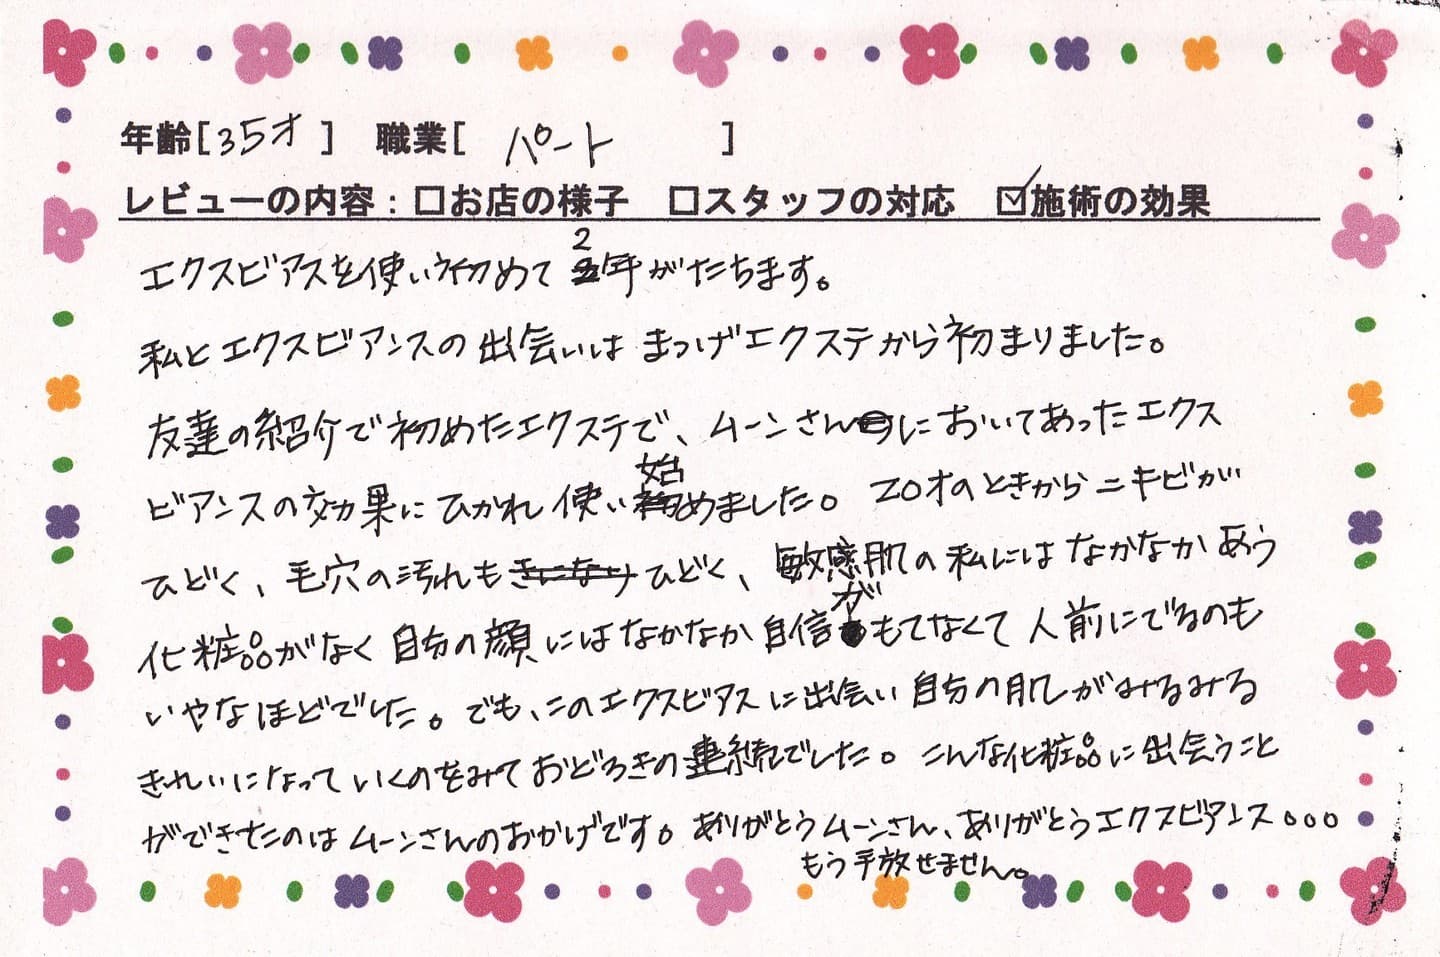 年齢[35才] 職業[ パート ]
レビューの内容：□お店の様子 □スタッフの対応 ☑施術の効果
エクスビアスを使い初めて2年がたちます。
私とエクスビアンスの出会いはまつげエクステから初まりました。
友達の紹介で初めたエクステで、ムーンさんにおいてあったエクス
ビアンスの効果にひかれ使い始めました。20才のときからニキビが
ひどく、毛穴の汚れもひどく、敏感肌の私にはなかなかあう
化粧品がなく自分の顔にはなかなか自信がもてなくて人前にでるのも
いやなほどでした。でも、このエクスビアスに出会い自分の肌がみるみる
きれいになっていくのをみておどろきの連続でした。こんな化粧品に出会うこと
ができたのはムーンさんのおかげです。ありがとうムーンさん、ありがとうエクスビアンス。。。
もう手放せません。